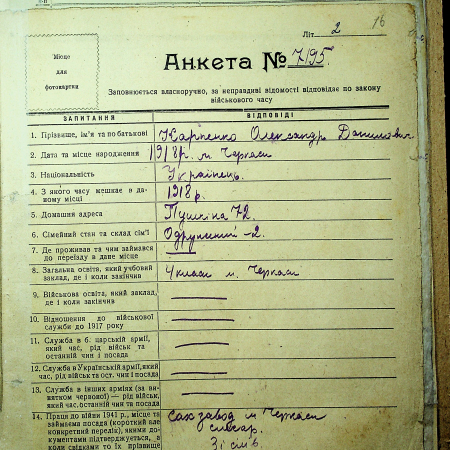 Літ. 2 16
Місце
для
фотокартки
Анкета № 7195.
Заповнюється власноручно, за неправдиві відомості відповідає по закону
військового часу
ЗАПИТАННЯ ВІДПОВІДІ
1. Прізвище, ім'я та по батькові Карпенко Олександр Данилович
2. Дата та місце народження 1918р. м. Черкаси
3. Національність Українець.
4. З якого часу мешкає в да-
ному місці 1918 р.
5. Домашня адреса Пушкіна 72.
6. Сімейний стан та склад сім'ї Одружений -2.
7. Де проживав та чим займався
до переїзду в дане місце —
8. Загальна освіта, який учбовий
заклад, де і коли закінчив 4 класи м. Черкаси
9. Військова освіта, який заклад,
де і коли закінчив —
10. Відношення до військової
служби до 1917 року —
11. Служба в б. царській армії,
який час, рід військ та
останній чин і посада —
12. Служба в Українській армії, який
час, рід військ та ост. чин і посада —
13. Служба в інших арміях (за ви-
нятком червоної) — рід військ,
який час, останній чин та посада —
14. Праця до війни 1941 р., місце та
займаєма посада (короткий але
конкретний перелік), якими до-
кументами підтверджується, а
коли свідками то їх прізвище
сах завод м Черкаси
слюсар.